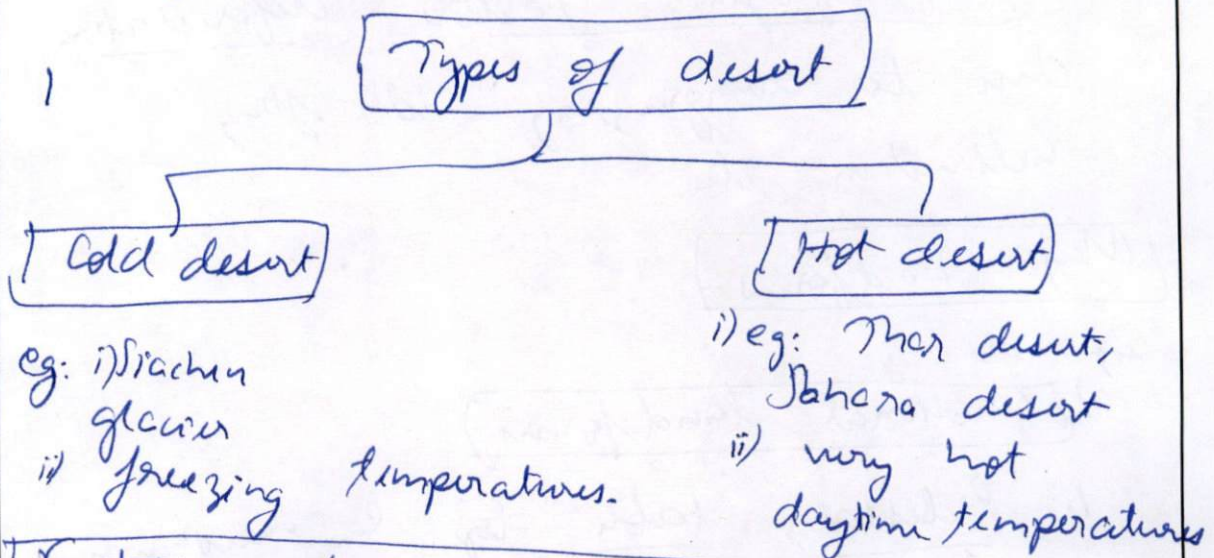 1
Types of desert
Cold desert
Hot desert
eg: i) Siachen
glacier
ii) freezing temperatures.
i) eg: Thar desert,
Sahara desert
ii) very hot
daytime temperatures